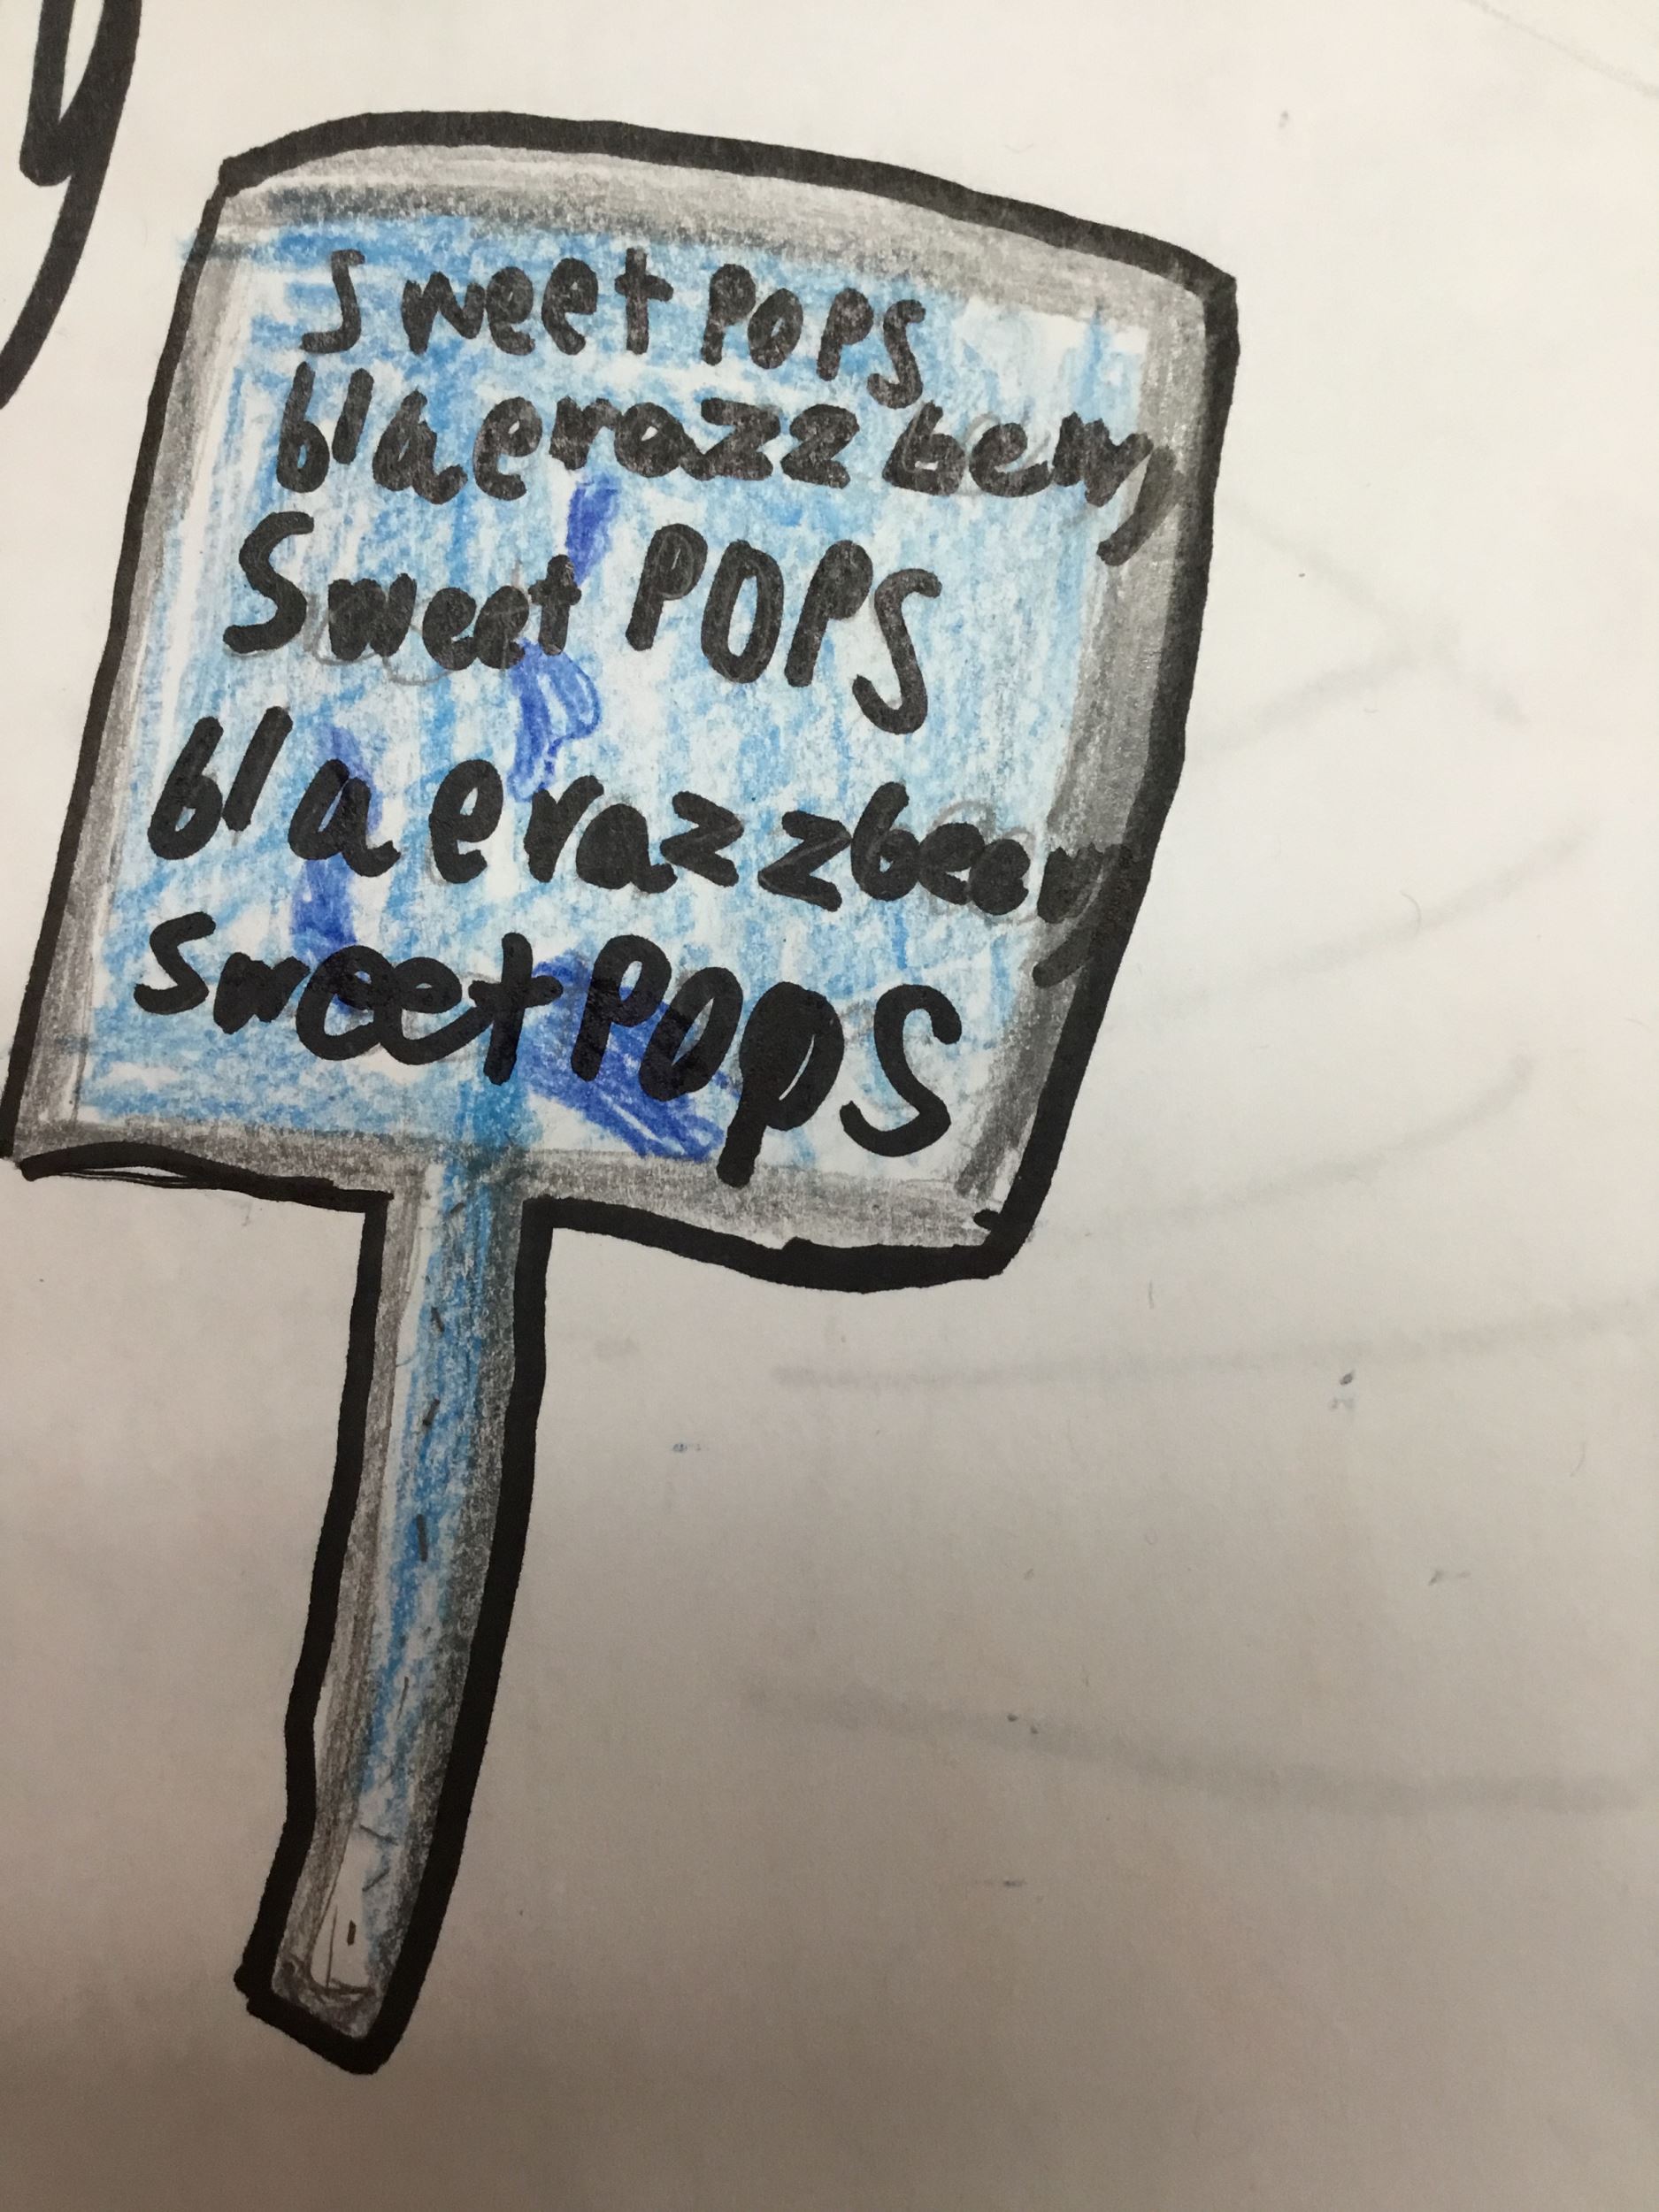 y
sweet POPS
blaerazz berry
Sweet POPS
blaerazzbeery
sweet POPS